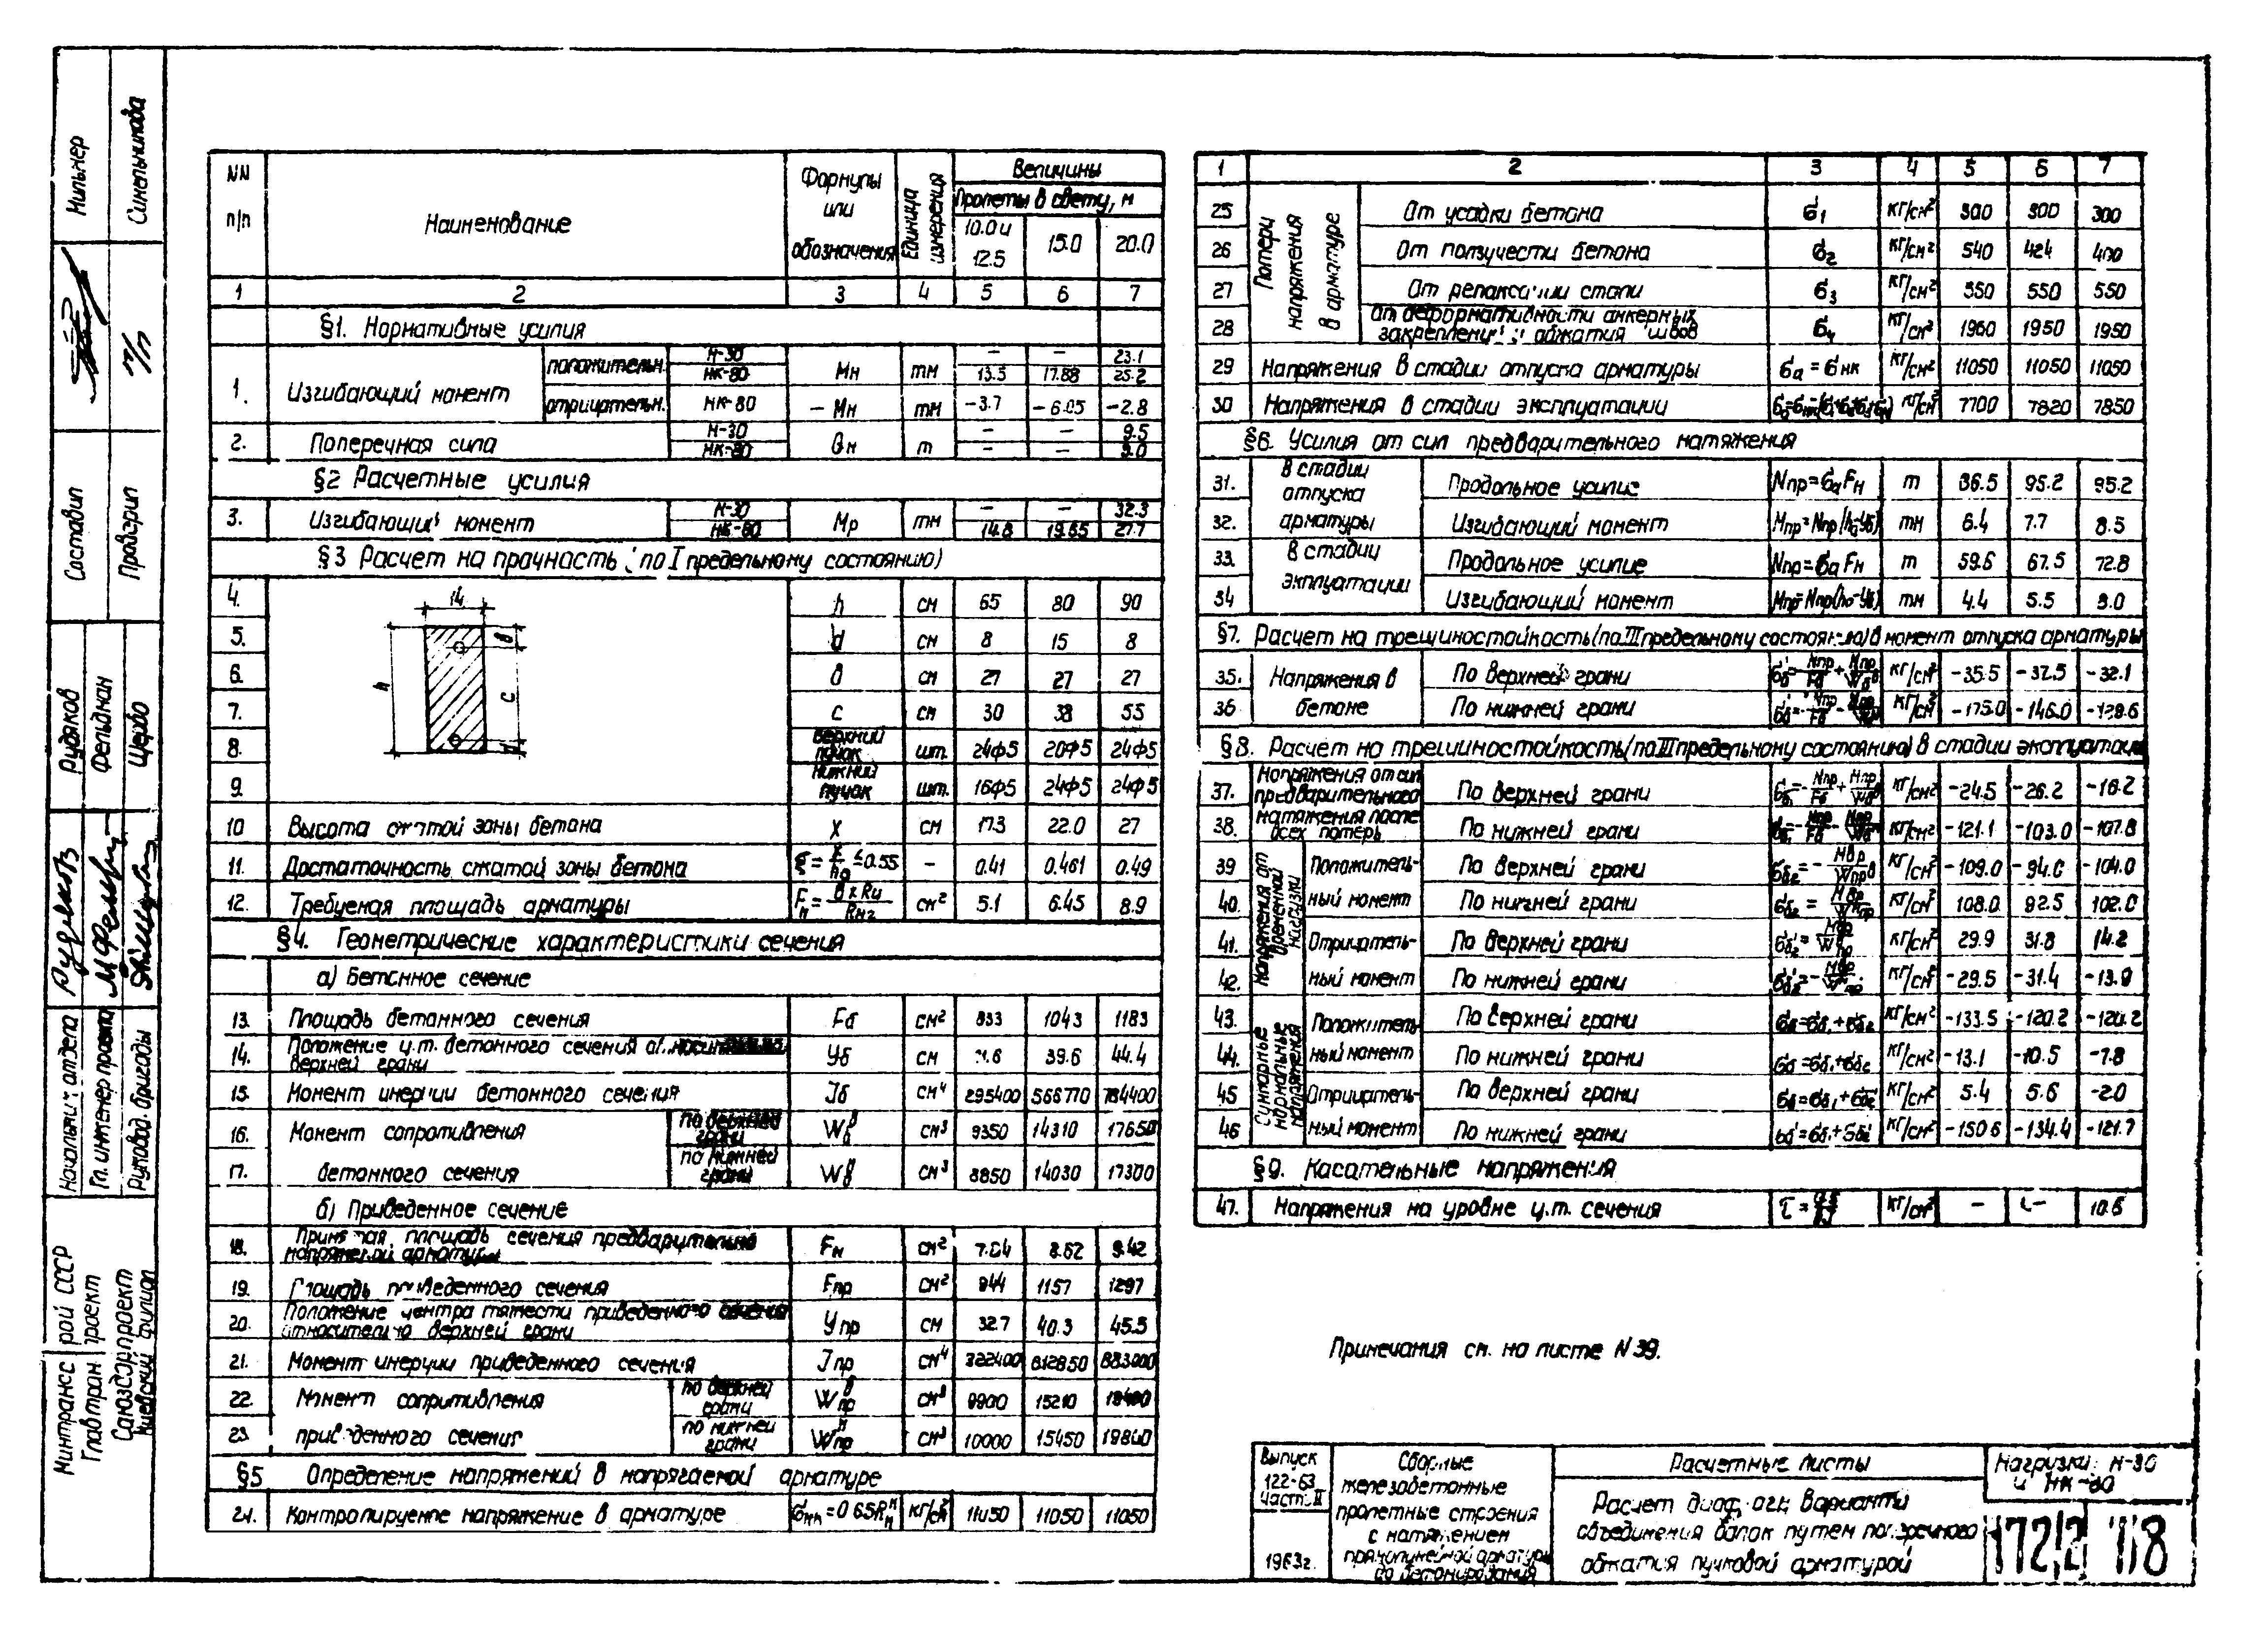 NN п/п | Наименование | Формулы или обозначения | Единица измерения | Величины
Пролеты в свету, м
10.0 и 12.5 | 15.0 | 20.0
1 | 2 | 3 | 4 | 5 | 6 | 7
§1. Нормативные усилия
1. Изгибающий момент | положительн. | Н-30 | Мн | тм | – | – | 23.1
НК-80 | 13.5 | 17.88 | 25.2
отрицательн. | НК-80 | – Мн | тм | –3.7 | –6.05 | –2.8
2. Поперечная сила | Н-30 | Qн | т | – | – | 9.5
НК-80 | – | – | 9.0
§2 Расчетные усилия
3. Изгибающий момент | Н-30 | Мр | тм | – | – | 32.3
НК-80 | 14.8 | 19.65 | 27.7
§3 Расчет на прочность (по I предельному состоянию)
14 h в c d
4. | h | см | 65 | 80 | 90
5. | d | см | 8 | 15 | 8
6. | в | см | 27 | 27 | 27
7. | с | см | 30 | 38 | 55
8. | Верхний пучок | шт. | 24ф5 | 20ф5 | 24ф5
9. | Нижний пучок | шт. | 16ф5 | 24ф5 | 24ф5
10 Высота сжатой зоны бетона | X | см | 17.3 | 22.0 | 27
11. Достаточность сжатой зоны бетона | ξ = x/h₀ ≤ 0.55 | – | 0.41 | 0.461 | 0.49
12. Требуемая площадь арматуры | Fн = в x Rи / Rн2 | см² | 5.1 | 6.45 | 8.9
§4. Геометрические характеристики сечения
а) Бетонное сечение
13. Площадь бетонного сечения | Fб | см² | 833 | 1043 | 1183
14. Положение ц.т. бетонного сечения верхней грани | Уб | см | 39.6 | 44.4
15. Момент инерции бетонного сечения | Jб | см⁴ | 295400 | 566770 | 784400
16. Момент сопротивления | по верхней грани | Wбв | см³ | 9350 | 14310 | 17650
17. бетонного сечения | по нижней грани | W | см³ | 8850 | 14030 | 17300
б) Приведенное сечение
18. Принятая площадь сечения предварительно напряженной арматуры | Fн | см² | 8.62 | 9.42
19. Площадь приведенного сечения | Fпр | см² | 944 | 1157 | 1297
20. Положение центра тяжести приведенного сечения относительно верхней грани | Упр | см | 32.7 | 40.3 | 45.5
21. Момент инерции приведенного сечения | Jпр | см⁴ | 322400 | 612850 | 883000
22. Момент сопротивления | по верхней грани | Wпрв | см³ | 9900 | 15210
23. приведенного сечения | по нижней грани | Wпрн | см³ | 10000 | 15450 | 19840
§5 Определение напряжений в напрягаемой арматуре
24. Контролируемое напряжение в арматуре | σнк = 0.65Rнн | кг/см² | 11050 | 11050 | 11050
1 | 2 | 3 | 4 | 5 | 6 | 7
Потери напряжения в арматуре
25 От усадки бетона | σ1 | кг/см² | 300 | 300 | 300
26 От ползучести бетона | σ2 | кг/см² | 540 | 424 | 400
27 От релаксации стали | σ3 | кг/см² | 550 | 550 | 550
28 От деформативности анкерных закреплений и обжатия швов | σ4 | кг/см² | 1960 | 1950 | 1950
29 Напряжения в стадии отпуска арматуры | σа = σнк | кг/см² | 11050 | 11050 | 11050
30 Напряжения в стадии эксплуатации | кг/см² | 7700 | 7820 | 7850
§6. Усилия от сил предварительного натяжения
31. В стадии отпуска | Продольное усилие | Nпр = σаFн | т | 86.5 | 95.2 | 95.2
32. арматуры | Изгибающий момент | Мпр = Nпр(h₀-Уб) | тм | 6.4 | 7.7 | 8.5
33. В стадии | Продольное усилие | Nпр = σаFн | т | 59.6 | 67.5 | 72.8
34 эксплуатации | Изгибающий момент | Мпр = Nпр(h₀-Уб) | тм | 4.4 | 5.5 | 8.0
§7. Расчет на трещиностойкость (по III предельному состоянию) в момент отпуска арматуры
35. Напряжения в | По верхней грани | кг/см² | –35.5 | –37.5 | –32.1
36 бетоне | По нижней грани | кг/см² | –175.0 | –146.0 | –128.6
§8. Расчет на трещиностойкость (по III предельному состоянию) в стадии эксплуатации
37. Напряжения от сил предварительного | По верхней грани | кг/см² | –24.5 | –26.2 | –16.2
38. натяжения после всех потерь | По нижней грани | кг/см² | –121.1 | –103.0 | –107.8
Напряжения от временной нагрузки
39 Положитель- | По верхней грани | σб2 = – Мвр/Wпрв | кг/см² | –109.0 | –94.0 | –104.0
40. ный момент | По нижней грани | кг/см² | 108.0 | 92.5 | 102.0
41. Отрицатель- | По верхней грани | кг/см² | 29.9 | 31.8 | 14.2
42. ный момент | По нижней грани | кг/см² | –29.5 | –31.4 | –13.9
Суммарные нормальные напряжения
43. Положитель- | По верхней грани | σб=σб1+σб2 | кг/см² | –133.5 | –120.2 | –120.2
44. ный момент | По нижней грани | σб=σб1+σб2 | кг/см² | –13.1 | –10.5 | –7.8
45 Отрицатель- | По верхней грани | σб=σб1+σб2' | кг/см² | 5.4 | 5.6 | –2.0
46 ный момент | По нижней грани | σб=σб1+σб2' | кг/см² | –150.6 | –134.4 | –121.7
§9. Касательные напряжения
47. Напряжения на уровне ц.т. сечения | кг/см² | – | – | 10.6
Примечания см. на листе N 39.
Выпуск 122-63 Часть II
1963г.
Сборные
железобетонные
пролетные строения
с натяжением
прямолинейной арматуры
до бетонирования
Расчетные листы
Расчет диафрагм. Варианти
объединения балок путем поперечного
обжатия пучковой арматурой
Нагрузки: Н-30
и НК-80
Мильнер
Синельникова
Составил
Проверил
Рудяков
Фельдман
Щербо
Начальник отдела
Гл. инженер проекта
Руковод. бригады
Союздорпроект
Киевский филиал